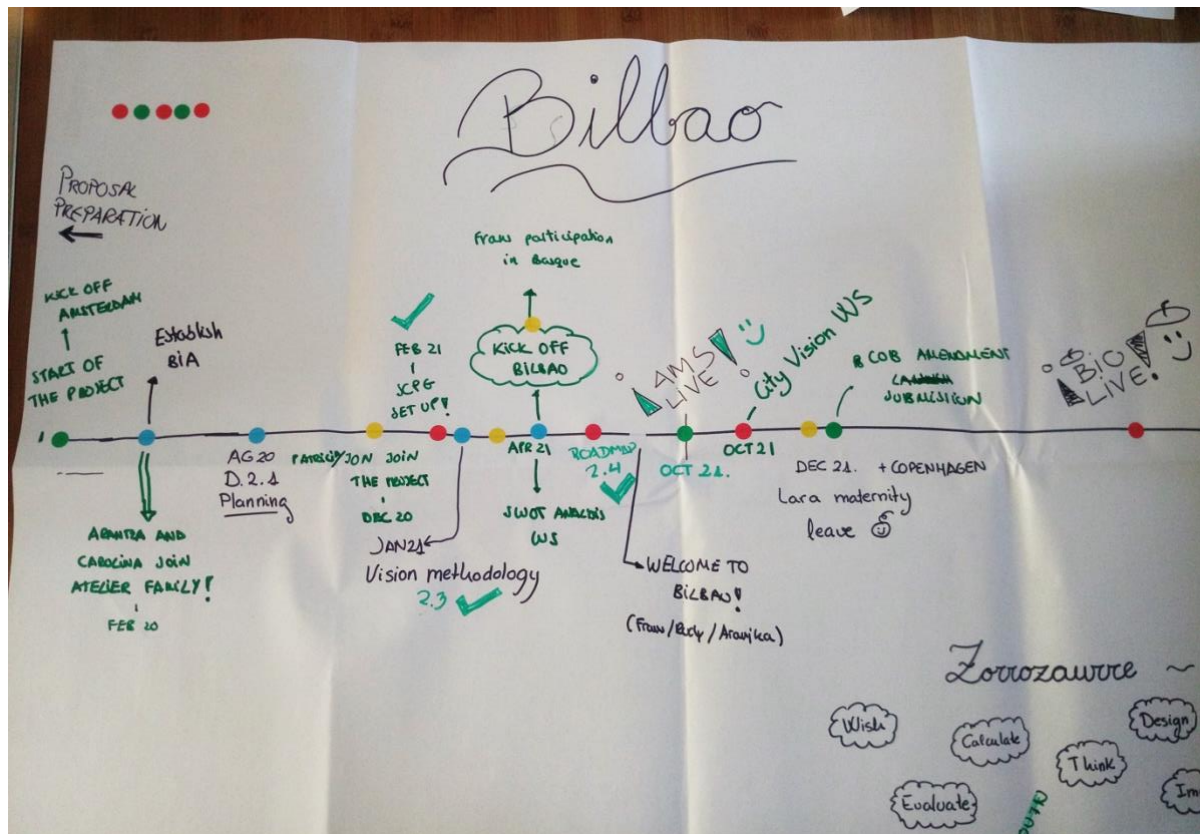 Bilbao
PROPOSAL
PREPARATION
KICK OFF
AMSTERDAM
START OF
THE PROJECT
Establish
BIA
ARANTZA AND
CAROLINA JOIN
ATELIER FAMILY!
FEB 20
AG 20
D.2.1
Planning
PATRICIA/JON JOIN
THE PROJECT
DEC 20
FEB 21
SCPG
SET UP!
JAN 21
Vision methodology
2.3
Frans participation
in Basque
KICK OFF
BILBAO
APR 21
SWOT ANALYSIS
WS
ROADMAP
2.4
WELCOME TO
BILBAO!
(Frans/Rudy/Aranka)
AMS
LIVE!
OCT 21.
City Vision WS
OCT 21
COB AMENDMENT
SUBMISSION
DEC 21. + COPENHAGEN
Lara maternity
leave
BIO
LIVE!
Zorrozaurre ~
Wish
Calculate
Design
Think
Evaluate
Im